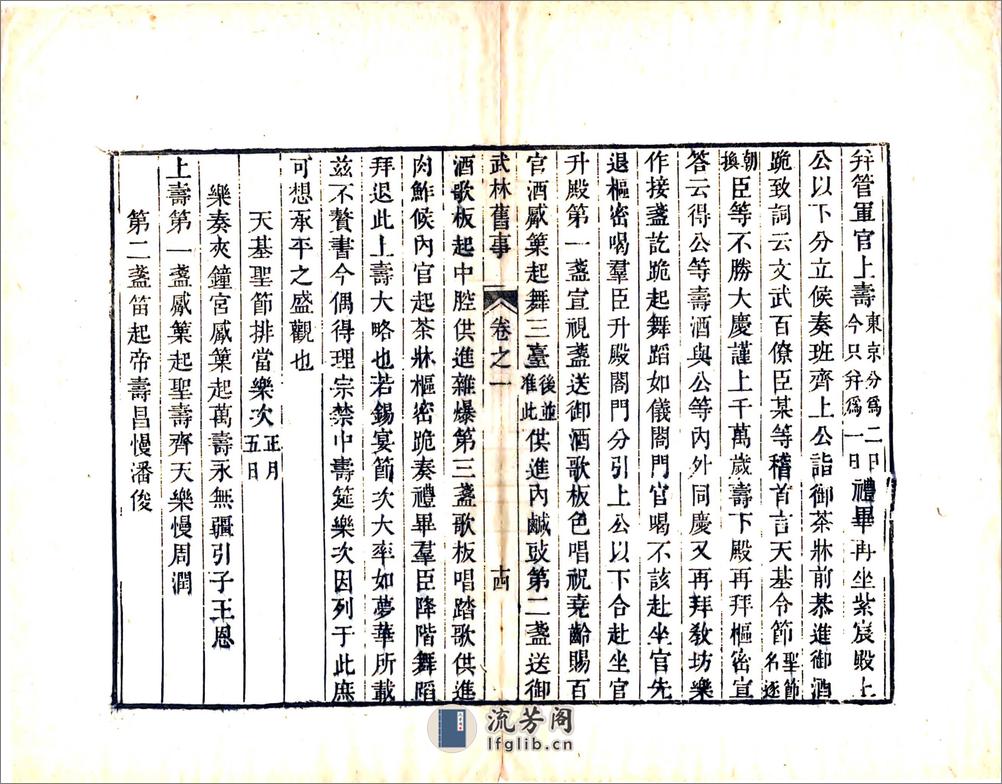 幷管軍官上壽東京分爲二日今只幷爲一日禮畢再坐紫宸殿上
公以下分立候奏班齊上公詣御茶牀前恭進御酒
跪致詞云文武百僚臣某等稽首言天基令節聖節名逐
朝換臣等不勝大慶謹上千萬歲壽下殿再拜樞密宣
答云得公等壽酒與公等內外同慶又再拜敎坊樂
作接盞訖跪起舞蹈如儀閤門官喝不該赴坐官先
退樞密喝羣臣升殿閤門分引上公以下合赴坐官
升殿第一盞宣視盞送御酒歌板色唱祝堯齡賜百
官酒觱篥起舞三臺後並准此供進內鹹豉第二盞送御
武林舊事 卷之一 十四
酒歌板起中腔供進雜爆第三盞歌板唱踏歌供進
肉鮓候內官起茶牀樞密跪奏禮畢羣臣降階舞蹈
拜退此上壽大略也若錫宴節次大率如夢華所載
茲不贅書今偶得理宗禁中壽筵樂次因列于此庶
可想承平之盛觀也
天基聖節排當樂次正月五日
樂奏夾鐘宮觱篥起萬壽永無疆引子王恩
上壽第一盞觱篥起聖壽齊天樂慢周潤
第二盞笛起帝壽昌慢潘俊
流芳阁
lfglib.cn